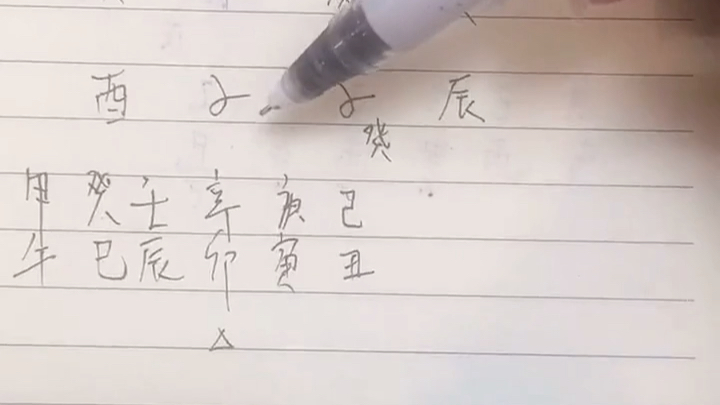 酉 子 子 辰
癸
甲 癸 壬 辛 庚 己
午 巳 辰 卯 寅 丑
△